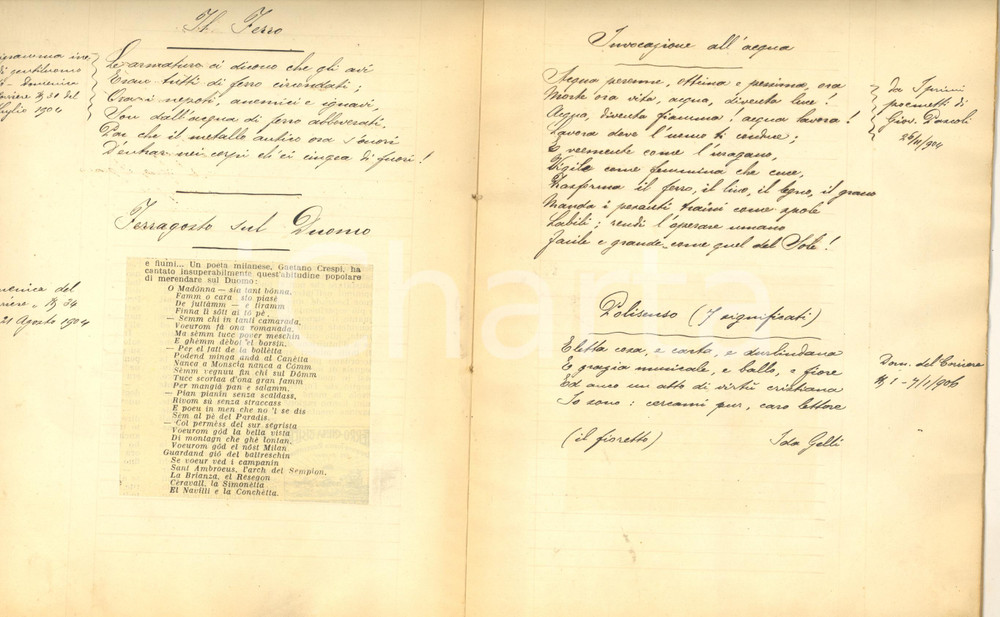 Il Ferro
Le armature ci dicono che gli avi
Erano tutti di ferro circondati;
Grazi nepoti, anemici e ignavi,
Son dall'acqua di ferro abbeverati,
Par che il metallo antico ora s'onori
D'entrar nei corpi ch'ei cingea di fuori!
di gentiluomo
Domenica
Corriere N 31 del
Luglio 1904
Ferragosto sul Duomo
e fiumi... Un poeta milanese, Gaetano Crespi, ha
cantato insuperabilmente quest'abitudine popolare
di merendare sul Duomo:
O Madònna — sia tant bònna,
Famm o cara sto piasè
De juttàmm — e tiramm
Finna lì sòtt ai tò pè.
— Semm chì in tanti camarada,
Voeurom fà ona romanada,
Ma sèmm tucc pover meschin
E ghèmm debol el borsin.
— Per el fatt de la bollètta
Podend minga andà al Canètta
Nanca a Monscia nanca a Còmm
Sèmm vegnuu fin chì sul Dòmm
Tucc scortaa d'ona gran famm
Per mangià pan e salamm.
— Pian pianin senza scaldass,
Rivom sù senza straccass
E poeu in men che no 'l se dis
Sèm al pè del Paradis.
— Col permèss del sur segrista
Voeurom gòd la bella vista
Di montagn che ghè lontan,
Voeurom gòd el nòst Milan
Guardand giò del baltreschin
Se voeur ved i campanin
Sant Ambroeus, l'arch del Sempion,
La Brianza, el Resegon
Ceravall, la Simonètta
El Navilli e la Conchètta.
Domenica del
Corriere N 34
21 Agosto 1904
Invocazione all'acqua
Acqua perenne, ottima e pessima, ora
Morte ora vita, acqua, diventa luce!
Acqua, diventa fiamma! acqua lavora!
Lavora dove l'uomo ti conduce;
E veemente come l'uragano,
Vigile come femmina che cuce,
Trasforma il ferro, il lino, il legno, il grano
Manda i pesanti traini come spole
Labili; rendi l'operare umano
Facile e grande come quel del Sole!
da I primi
poemetti di
Giov. Pascoli
26/11/904
Polisenso (7 significati)
Eletta cosa, e carta, e durlindana
E grazia musicale, e ballo, e fiore
Ed anco un atto di virtù cristiana
Io sono: cercami pur, caro lettore
(il fioretto)
Ida Gelli
Dom. del Corriere
N 1 - 7/1/906
Charta